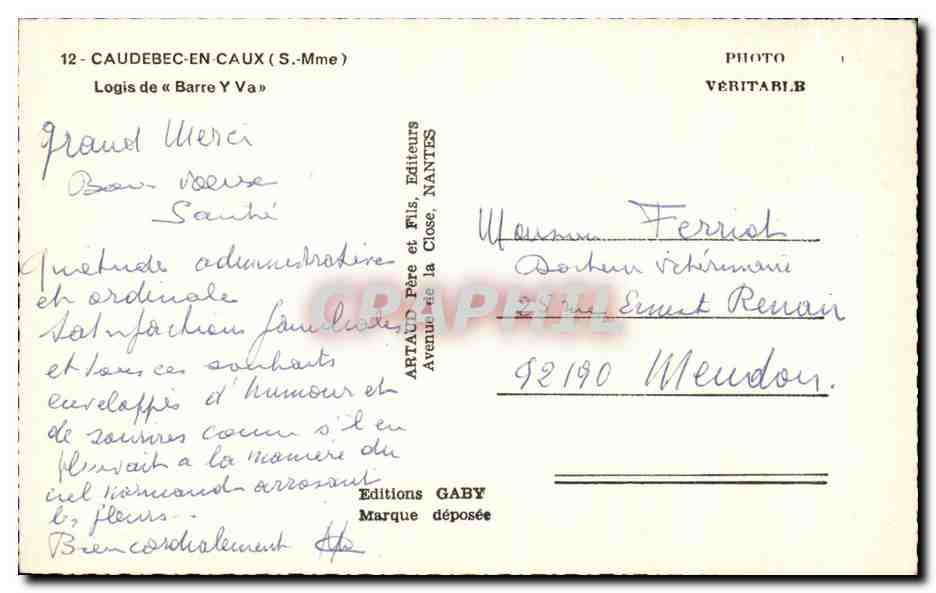 12 - CAUDEBEC-EN-CAUX (S.-Mme)
Logis de « Barre Y Va »
PHOTO
VÉRITABLE
Grand Merci
Bons voeux
Santé
Quiétude administrative
et ordinale
Satisfactions familiales
et tous ces souhaits
enveloppés d'humour et
de sourires comme s'il en
pleuvait a la manière du
ciel normand arrosant
les fleurs...
Bien cordialement
ARTAUD Père et Fils, Editeurs
Avenue de la Close, NANTES
Monsieur Ferriot
Docteur Vétérinaire
28 rue Ernest Renan
92190 Meudon.
Editions GABY
Marque déposée
CPAPHIL